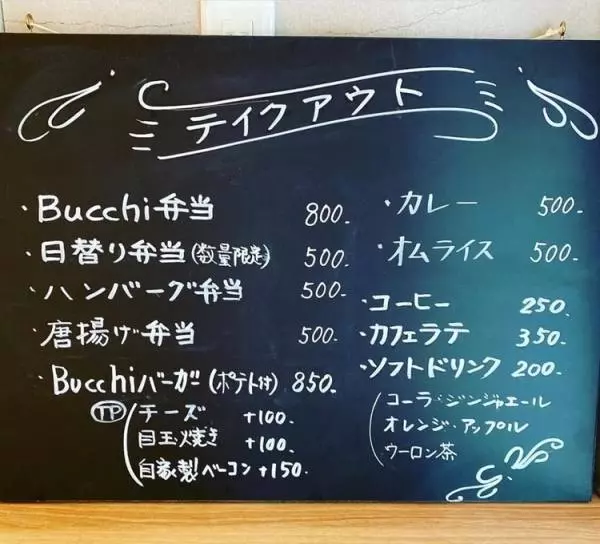 テイクアウト
・Bucchi弁当 800-
・日替り弁当(数量限定) 500-
・ハンバーグ弁当 500-
・唐揚げ弁当 500-
・Bucchiバーガー(ポテト付) 850-
TP チーズ +100-
目玉焼き +100-
自家製ベーコン +150-
・カレー 500-
・オムライス 500-
・コーヒー 250-
・カフェラテ 350-
・ソフトドリンク 200-
コーラ・ジンジャエール
オレンジ・アップル
ウーロン茶